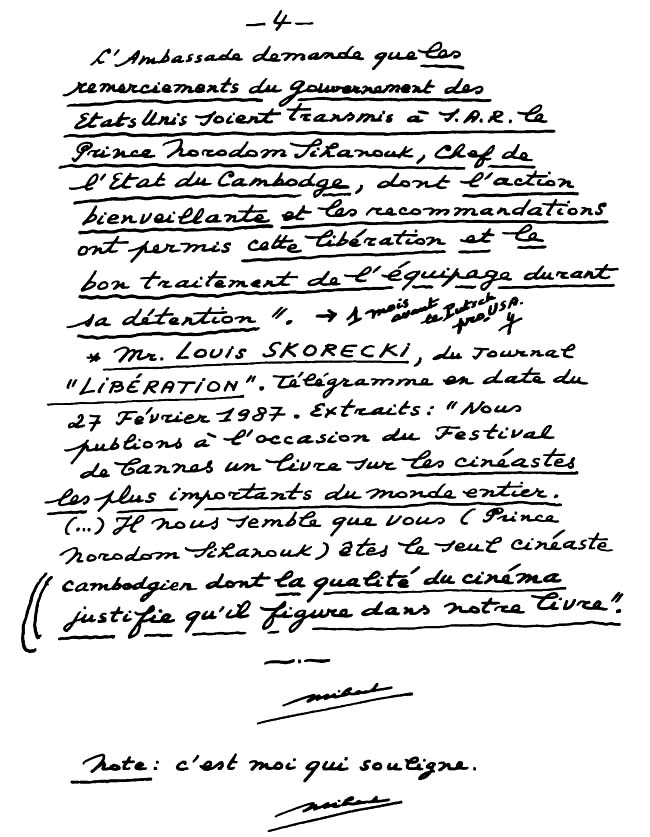 — 4 —
L'Ambassade demande que les
remerciements du gouvernement des
Etats Unis soient transmis à S.A.R. le
Prince Norodom Sihanouk, Chef de
l'Etat du Cambodge, dont l'action
bienveillante et les recommandations
ont permis cette libération et le
bon traitement de l'équipage durant
sa détention ". → 1 mois avant le Putsch pro. USA.
* Mr. Louis SKORECKI, du Journal
"LIBÉRATION". Télégramme en date du
27 Février 1987. Extraits : " Nous
publions à l'occasion du Festival
de Cannes un livre sur les cinéastes
les plus importants du monde entier.
(...) Il nous semble que vous ( Prince
Norodom Sihanouk ) êtes le seul cinéaste
cambodgien dont la qualité du cinéma
justifie qu'il figure dans notre livre".
Note : c'est moi qui souligne.